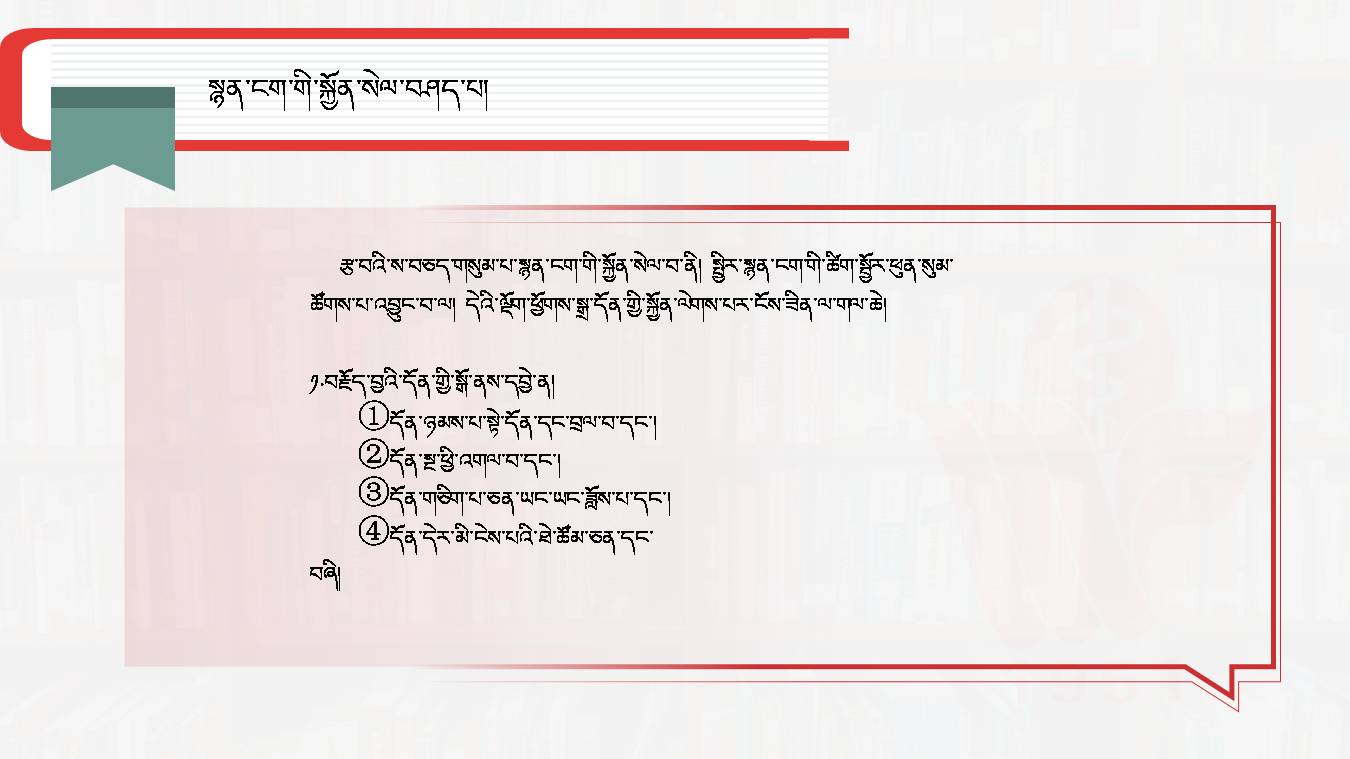 སྙན་ངག་གི་སྐྱོན་སེལ་བཤད་པ།
རྩ་བའི་ས་བཅད་གསུམ་པ་སྙན་ངག་གི་སྐྱོན་སེལ་བ་ནི། སྤྱིར་སྙན་ངག་གི་ཚིག་སྦྱོར་ཕུན་སུམ་
ཚོགས་པ་འབྱུང་བ་ལ། དེའི་ལྡོག་ཕྱོགས་སྒྲ་དོན་གྱི་སྐྱོན་ལེགས་པར་ངོས་ཟིན་ལ་གལ་ཆེ།
༡.བརྗོད་བྱའི་དོན་གྱི་སྒོ་ནས་དབྱེ་ན།
①དོན་ཉམས་པ་སྟེ་དོན་དང་བྲལ་བ་དང་།
②དོན་སྔ་ཕྱི་འགལ་བ་དང་།
③དོན་གཅིག་པ་ཅན་ཡང་ཡང་ཟློས་པ་དང་།
④དོན་དེར་མི་ངེས་པའི་ཐེ་ཚོམ་ཅན་དང་
བཞི།